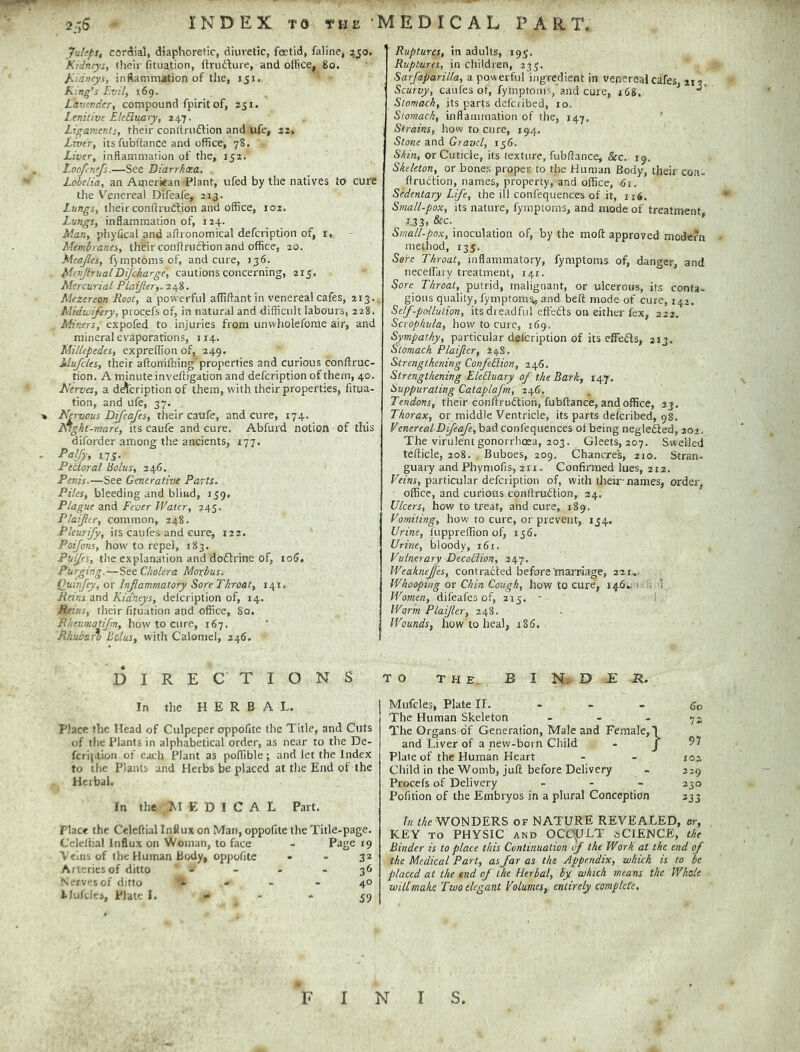 256 INDEX TO THE MEDICAL PART.
Juleps, cordial, diaphoretic, diuretic, fœtid, ſaline, 250.
Kidneys, their ſituation, ſtructure, and office, 80.
Kidneys, inflammation of the, 151.
King's Evil, 169.
Lavender, compound ſpirit of, 251.
Lenitive Electuary, 247.
Ligaments, their conſtruction and uſe, 22.
Liver, its ſubſtance and office, 78.
Liver, inflammation of the, 152.
Looſeneſs.—See Diarrhœa.
Lobelia, an American Plant, uſed by the natives to cure
the Venereal Diſeaſe, 213.
Lungs, their conſtruction and office, 102.
Lungs, inflammation of, 124.
Man, phyſical and aſtronomical deſcription of, 1.
Membranes, their conſtruction and office, 20.
Meaſles, ſymptoms of, and cure, 136.
Menſtrual Diſcharge, cautions concerning, 215.
Mercurial Plaiſter, 248.
Mezereon Root, a powerful aſſiſtant in venereal caſes, 213.
Midwifery, proceſs of, in natural and difficult labours, 228.
Miners, expoſed to injuries from unwholeſome air, and
mineral evaporations, 114.
Millepedes, expreſſion of, 249.
Muſcles, their aſtoniſhing properties and curious conſtruc-
tion. A minute inveſtigation and deſcription of them, 40.
Nerves, a deſcription of them, with their properties, ſitua-
tion, and uſe, 37.
Nervous Diſeaſes, their cauſe, and cure, 174.
Night-mare, its cauſe and cure. Abſurd notion of this
diſorder among the ancients, 177.
Palſy, 175.
Pectoral Bolus, 246.
Penis.—See Generative Parts.
Piles, bleeding and blind, 159.
Plague and Fever Water, 245.
Plaiſter, common, 248.
Pleuriſy, its cauſes and cure, 122.
Poiſons, how to repel, 183.
Pulſes, the explanation and doctrine of, 106.
Purging.—See Cholera Morbus.
Quinſey, or Inflammatory Sore Throat, 141.
Reins and Kidneys, deſcription of, 14.
Reins, their ſituation and office, 80.
Rheumatiſm, how to cure, 167.
Rhubarb Bolus, with Calomel, 246.
Ruptures, in adults, 195.
Ruptures, in children, 235.
Sarſaparilla, a powerful ingredient in venereal caſes, 213.
Scurvy, cauſes of, ſymptoms, and cure, 168.
Stomach, its parts deſcribed, 10.
Stomach, inflammation of the, 147.
Strains, how to cure, 194.
Stone and Gravel, 156.
Skin, or Cuticle, its texture, ſubſtance, &c. 19.
Skeleton, or bones proper to the Human Body, their con-
ſtruction, names, property, and office, 61.
Sedentary Life, the ill conſequences of it, 116.
Small-pox, its nature, ſymptoms, and mode of treatment,
133, &c.
Small-pox, inoculation of, by the moſt approved modern
method, 135.
Sore Throat, inflammatory, ſymptoms of, danger, and
neceſſary treatment, 141.
Sore Throat, putrid, malignant, or ulcerous, its conta-
gious quality, ſymptoms, and beſt mode of cure, 142.
Self-pollution, its dreadful effects on either ſex, 222.
Scrophula, how to cure, 169.
Sympathy, particular deſcription of its effects, 213.
Stomach Plaiſter, 248.
Strengthening Confection, 246.
Strengthening Electuary of the Bark, 147.
Suppurating Cataplaſm, 246.
Tendons, their conſtruction, ſubſtance, and office, 23.
Thorax, or middle Ventricle, its parts deſcribed, 98.
Venereal Diſeaſe, bad conſequences of being neglected, 202.
The virulent gonorrhœa, 203. Gleets, 207. Swelled
teſticle, 208. Buboes, 209. Chancres, 210. Stran-
guary and Phymoſis, 211. Confirmed lues, 212.
Veins, particular deſcription of, with their names, order,
office, and curious conſtruction, 24.
Ulcers, how to treat, and cure, 189.
Vomiting, how to cure, or prevent, 154.
Urine, ſuppreſſion of, 156.
Urine, bloody, 161.
Vulnerary Decoction, 247.
Weakneſſes, contracted before marriage, 221.
Whooping or Chin Cough, how to cure, 146.
Women, diſeaſes of, 215.
Worm Plaiſter, 248.
Wounds, how to heal, 186.
DIRECTIONS TO THE BINDER.
In the HERBAL.
Place the Head of Culpeper oppoſite the Title, and Cuts
of the Plants in alphabetical order, as near to the De-
ſcription of each Plant as poſſible; and let the Index
to the Plants and Herbs be placed at the End of the
Herbal.
In the MEDICAL Part.
Place the Celeſtial Influx on Man, oppoſite the Title-page.
Celeſtial Influx on Woman, to face - Page 19
Veins of the Human Body, oppoſite - - 32
Arteries of ditto - - - - 36
Nerves of ditto - - - - 40
Muſcles, Plate I. - - - 59
Muſcles, Plate II. - - - 60
The Human Skeleton - - - 72
The Organs of Generation, Male and Female, }
and Liver of a new-born Child - } 97
Plate of the Human Heart - - 102
Child in the Womb, juſt before Delivery - 229
Proceſs of Delivery - - - 230
Poſition of the Embryos in a plural Conception 233
In the WONDERS OF NATURE REVEALED, or,
KEY TO PHYSIC AND OCCULT SCIENCE, the
Binder is to place this Continuation of the Work at the end of
the Medical Part, as far as the Appendix, which is to be
placed at the end of the Herbal, by which means the Whole
will make Two elegant Volumes, entirely complete.
FINIS.